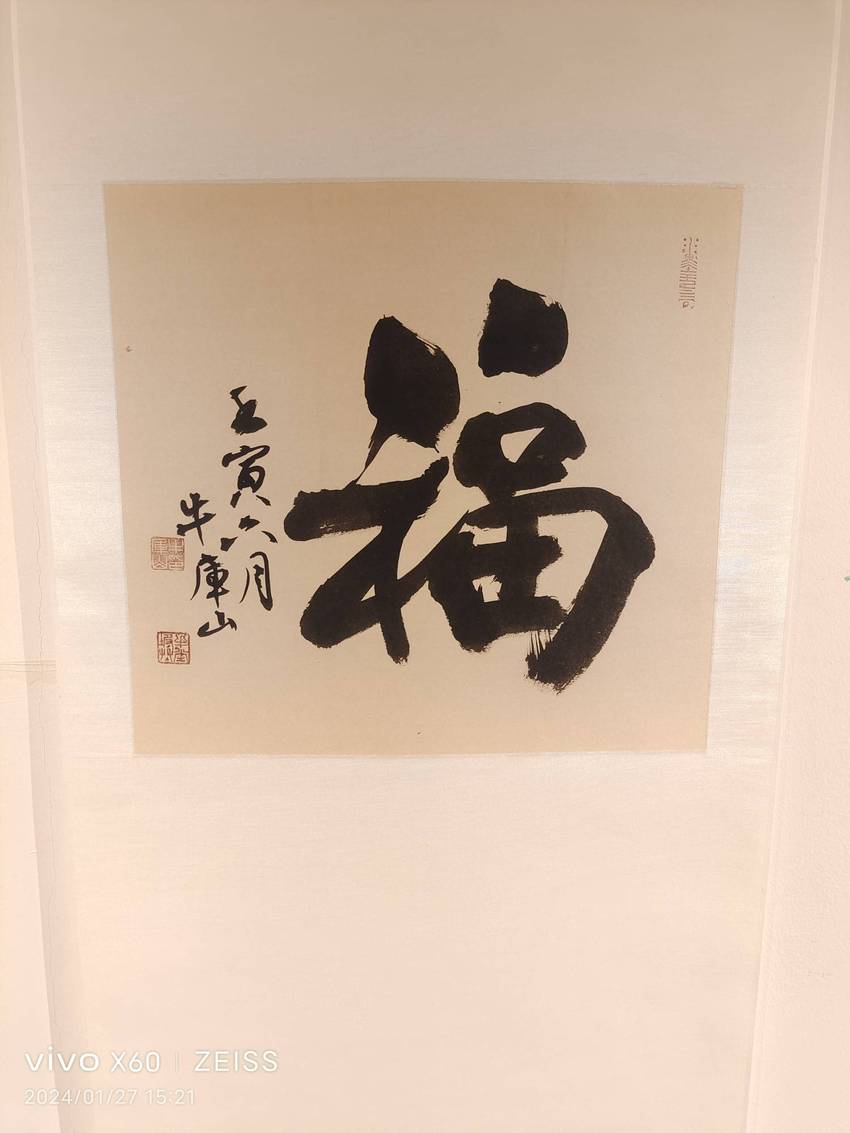 福
壬寅六月
牛庫山
vivo X60 | ZEISS
2024/01/27 15:21